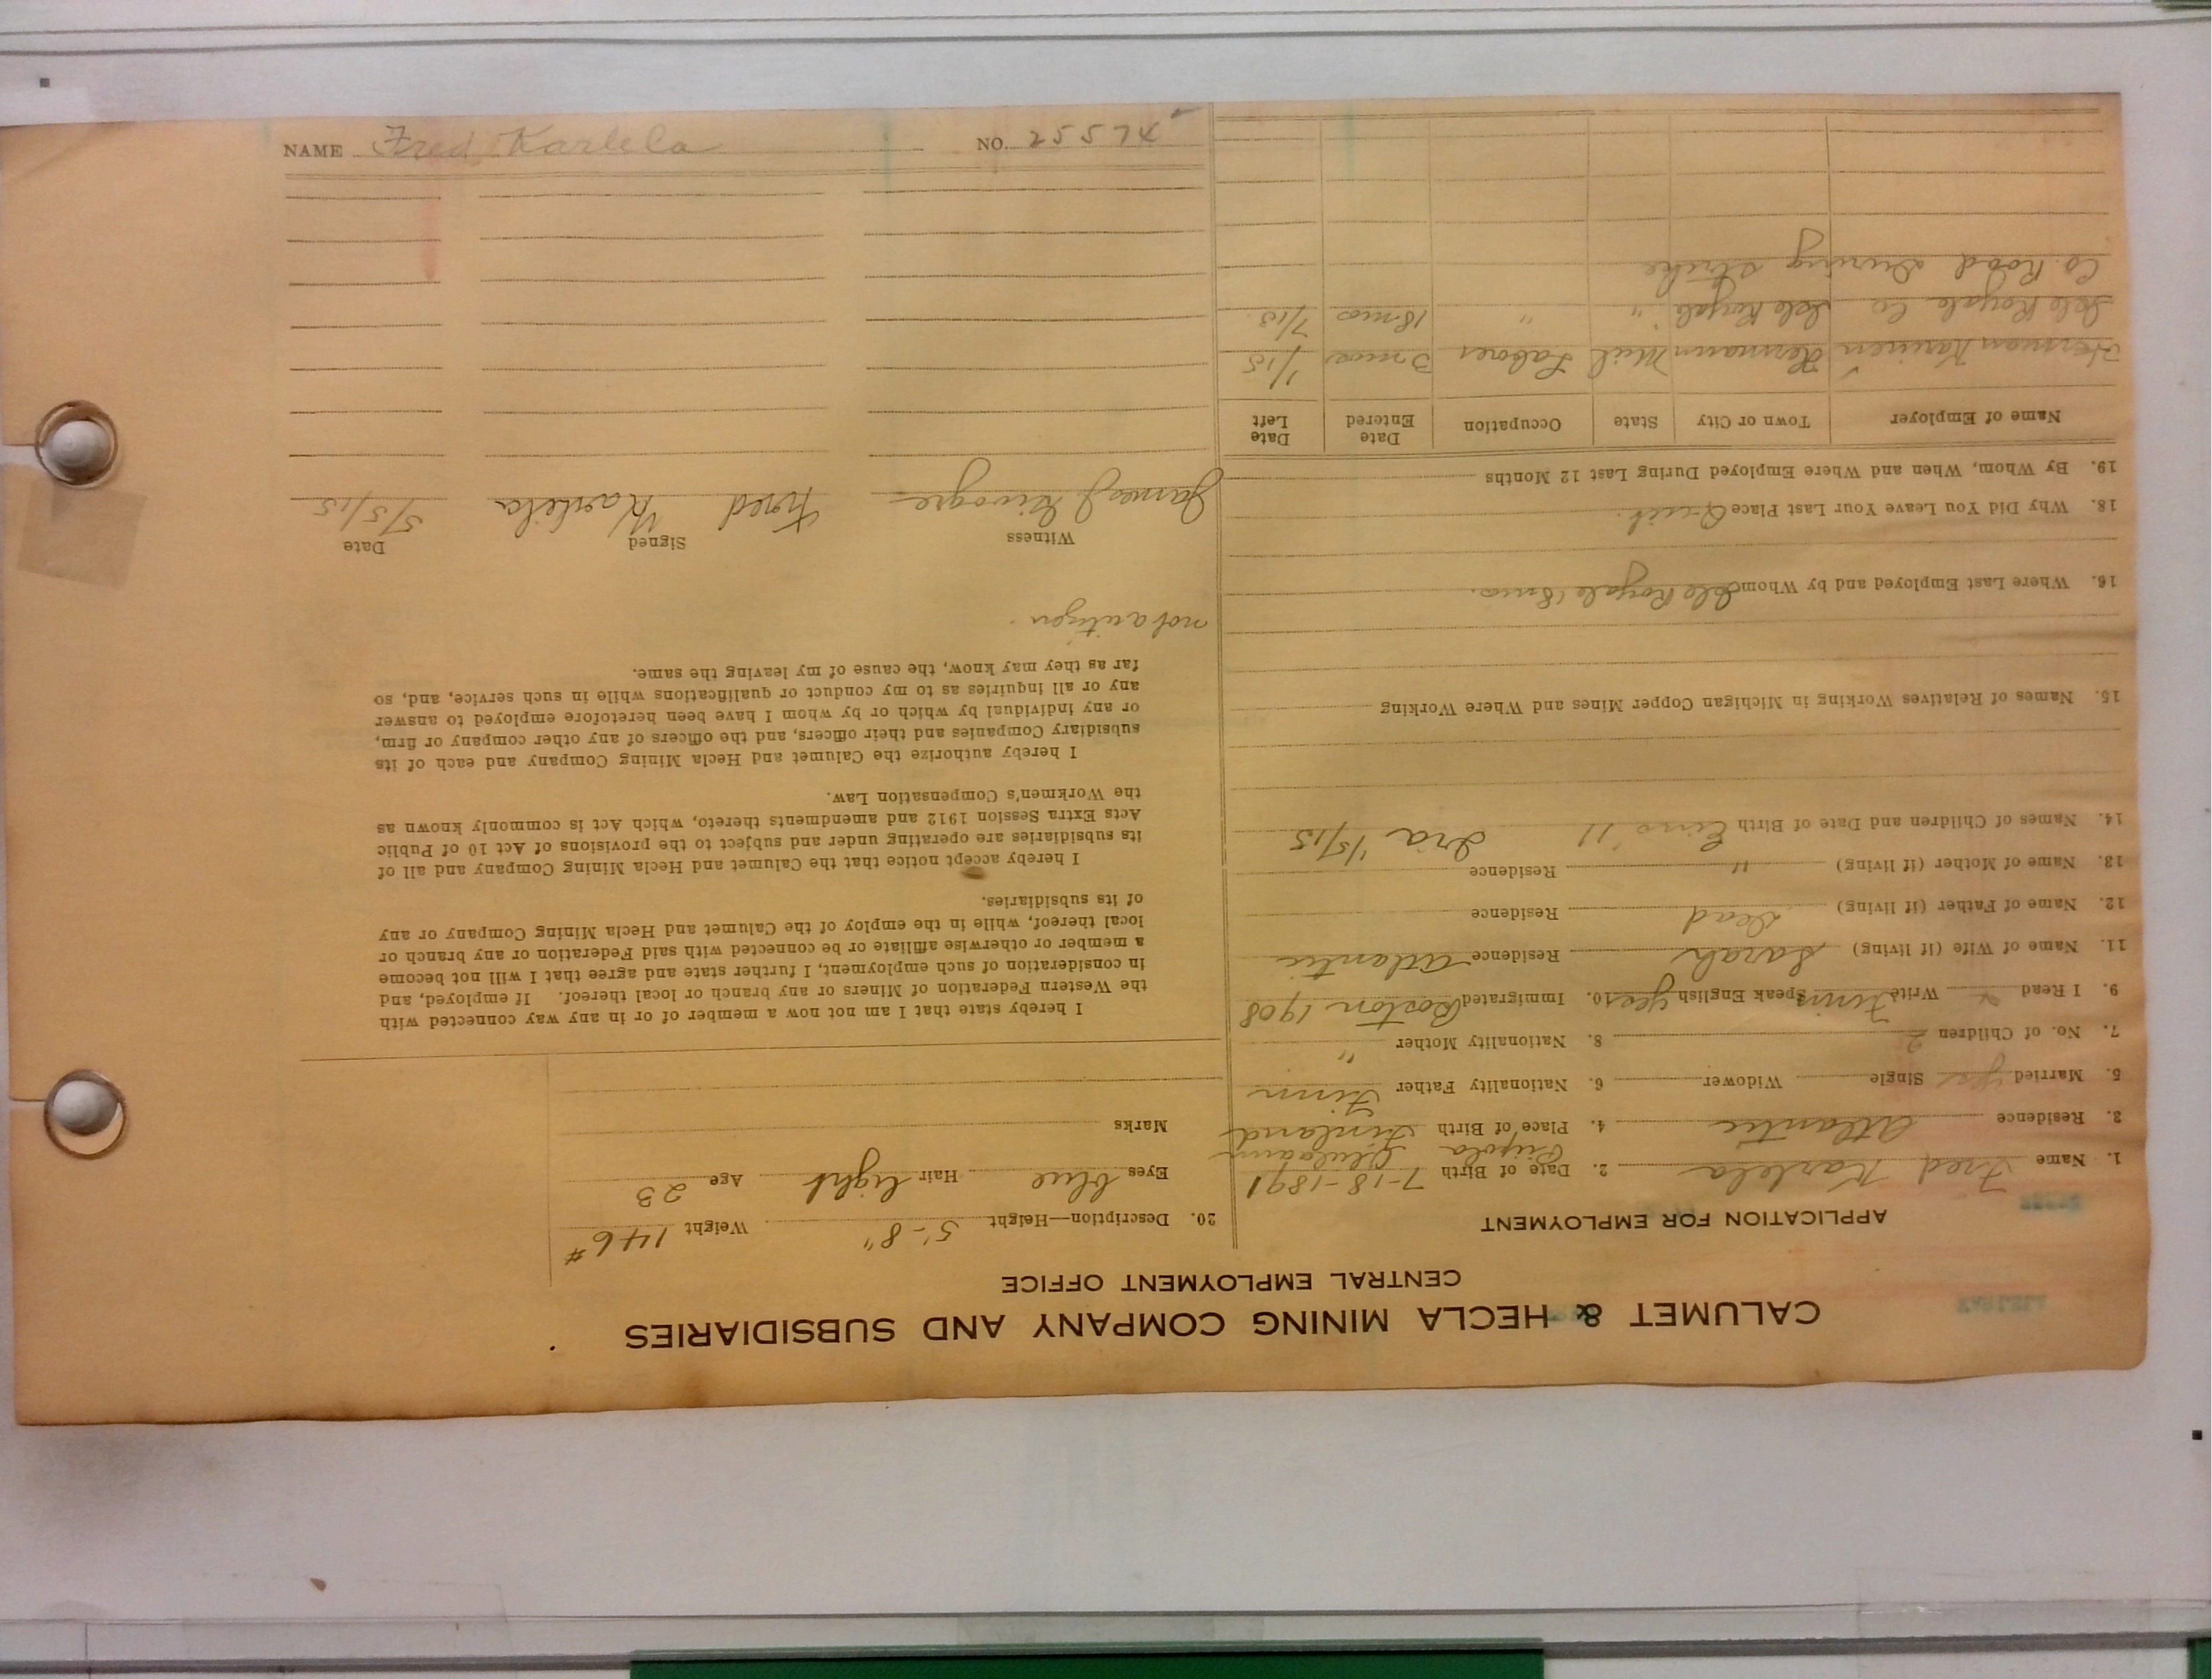 CALUMET & HECLA MINING COMPANY AND SUBSIDIARIES
CENTRAL EMPLOYMENT OFFICE
APPLICATION FOR EMPLOYMENT
1. Name Fred Karlela 2. Date of Birth 7-18-1891
3. Residence Atlantic 4. Place of Birth Finland
5. Married yes Single Widower 6. Nationality Father Finn
7. No. of Children 2 8. Nationality Mother "
9. I Read Write Finnish Speak English yes 10. Immigrated Boston 1908
11. Name of Wife (if living) Sarah Residence Atlantic
12. Name of Father (if living) Dead Residence
13. Name of Mother (if living) " Residence
14. Names of Children and Date of Birth Eino '11 Ira 1/5/15
15. Names of Relatives Working in Michigan Copper Mines and Where Working
16. Where Last Employed and by Whom Isle Royale 18 mos.
18. Why Did You Leave Your Last Place Quit.
19. By Whom, When and Where Employed During Last 12 Months
Name of Employer Town or City State Occupation Date Entered Date Left
Herman Karinen Hermann Mich Laborer 3 mos 1/15
Isle Royale Co Isle Royale " " 18 mos 7/13
Co. Road during strike
20. Description—Height 5'-8" Weight 146#
Eyes blue Hair light Age 23
Marks
I hereby state that I am not now a member of or in any way connected with
the Western Federation of Miners or any branch or local thereof. If employed, and
in consideration of such employment, I further state and agree that I will not become
a member or otherwise affiliate or be connected with said Federation or any branch or
local thereof, while in the employ of the Calumet and Hecla Mining Company or any
of its subsidiaries.
I hereby accept notice that the Calumet and Hecla Mining Company and all of
its subsidiaries are operating under and subject to the provisions of Act 10 of Public
Acts Extra Session 1912 and amendments thereto, which Act is commonly known as
the Workmen's Compensation Law.
I hereby authorize the Calumet and Hecla Mining Company and each of its
subsidiary Companies and their officers, and the officers of any other company or firm,
or any individual by which or by whom I have been heretofore employed to answer
any or all inquiries as to my conduct or qualifications while in such service, and, so
far as they may know, the cause of my leaving the same.
not a citizen.
Witness Signed Date
James J Fred Karlela 5/5/15
NAME Fred Karlela NO. 25574